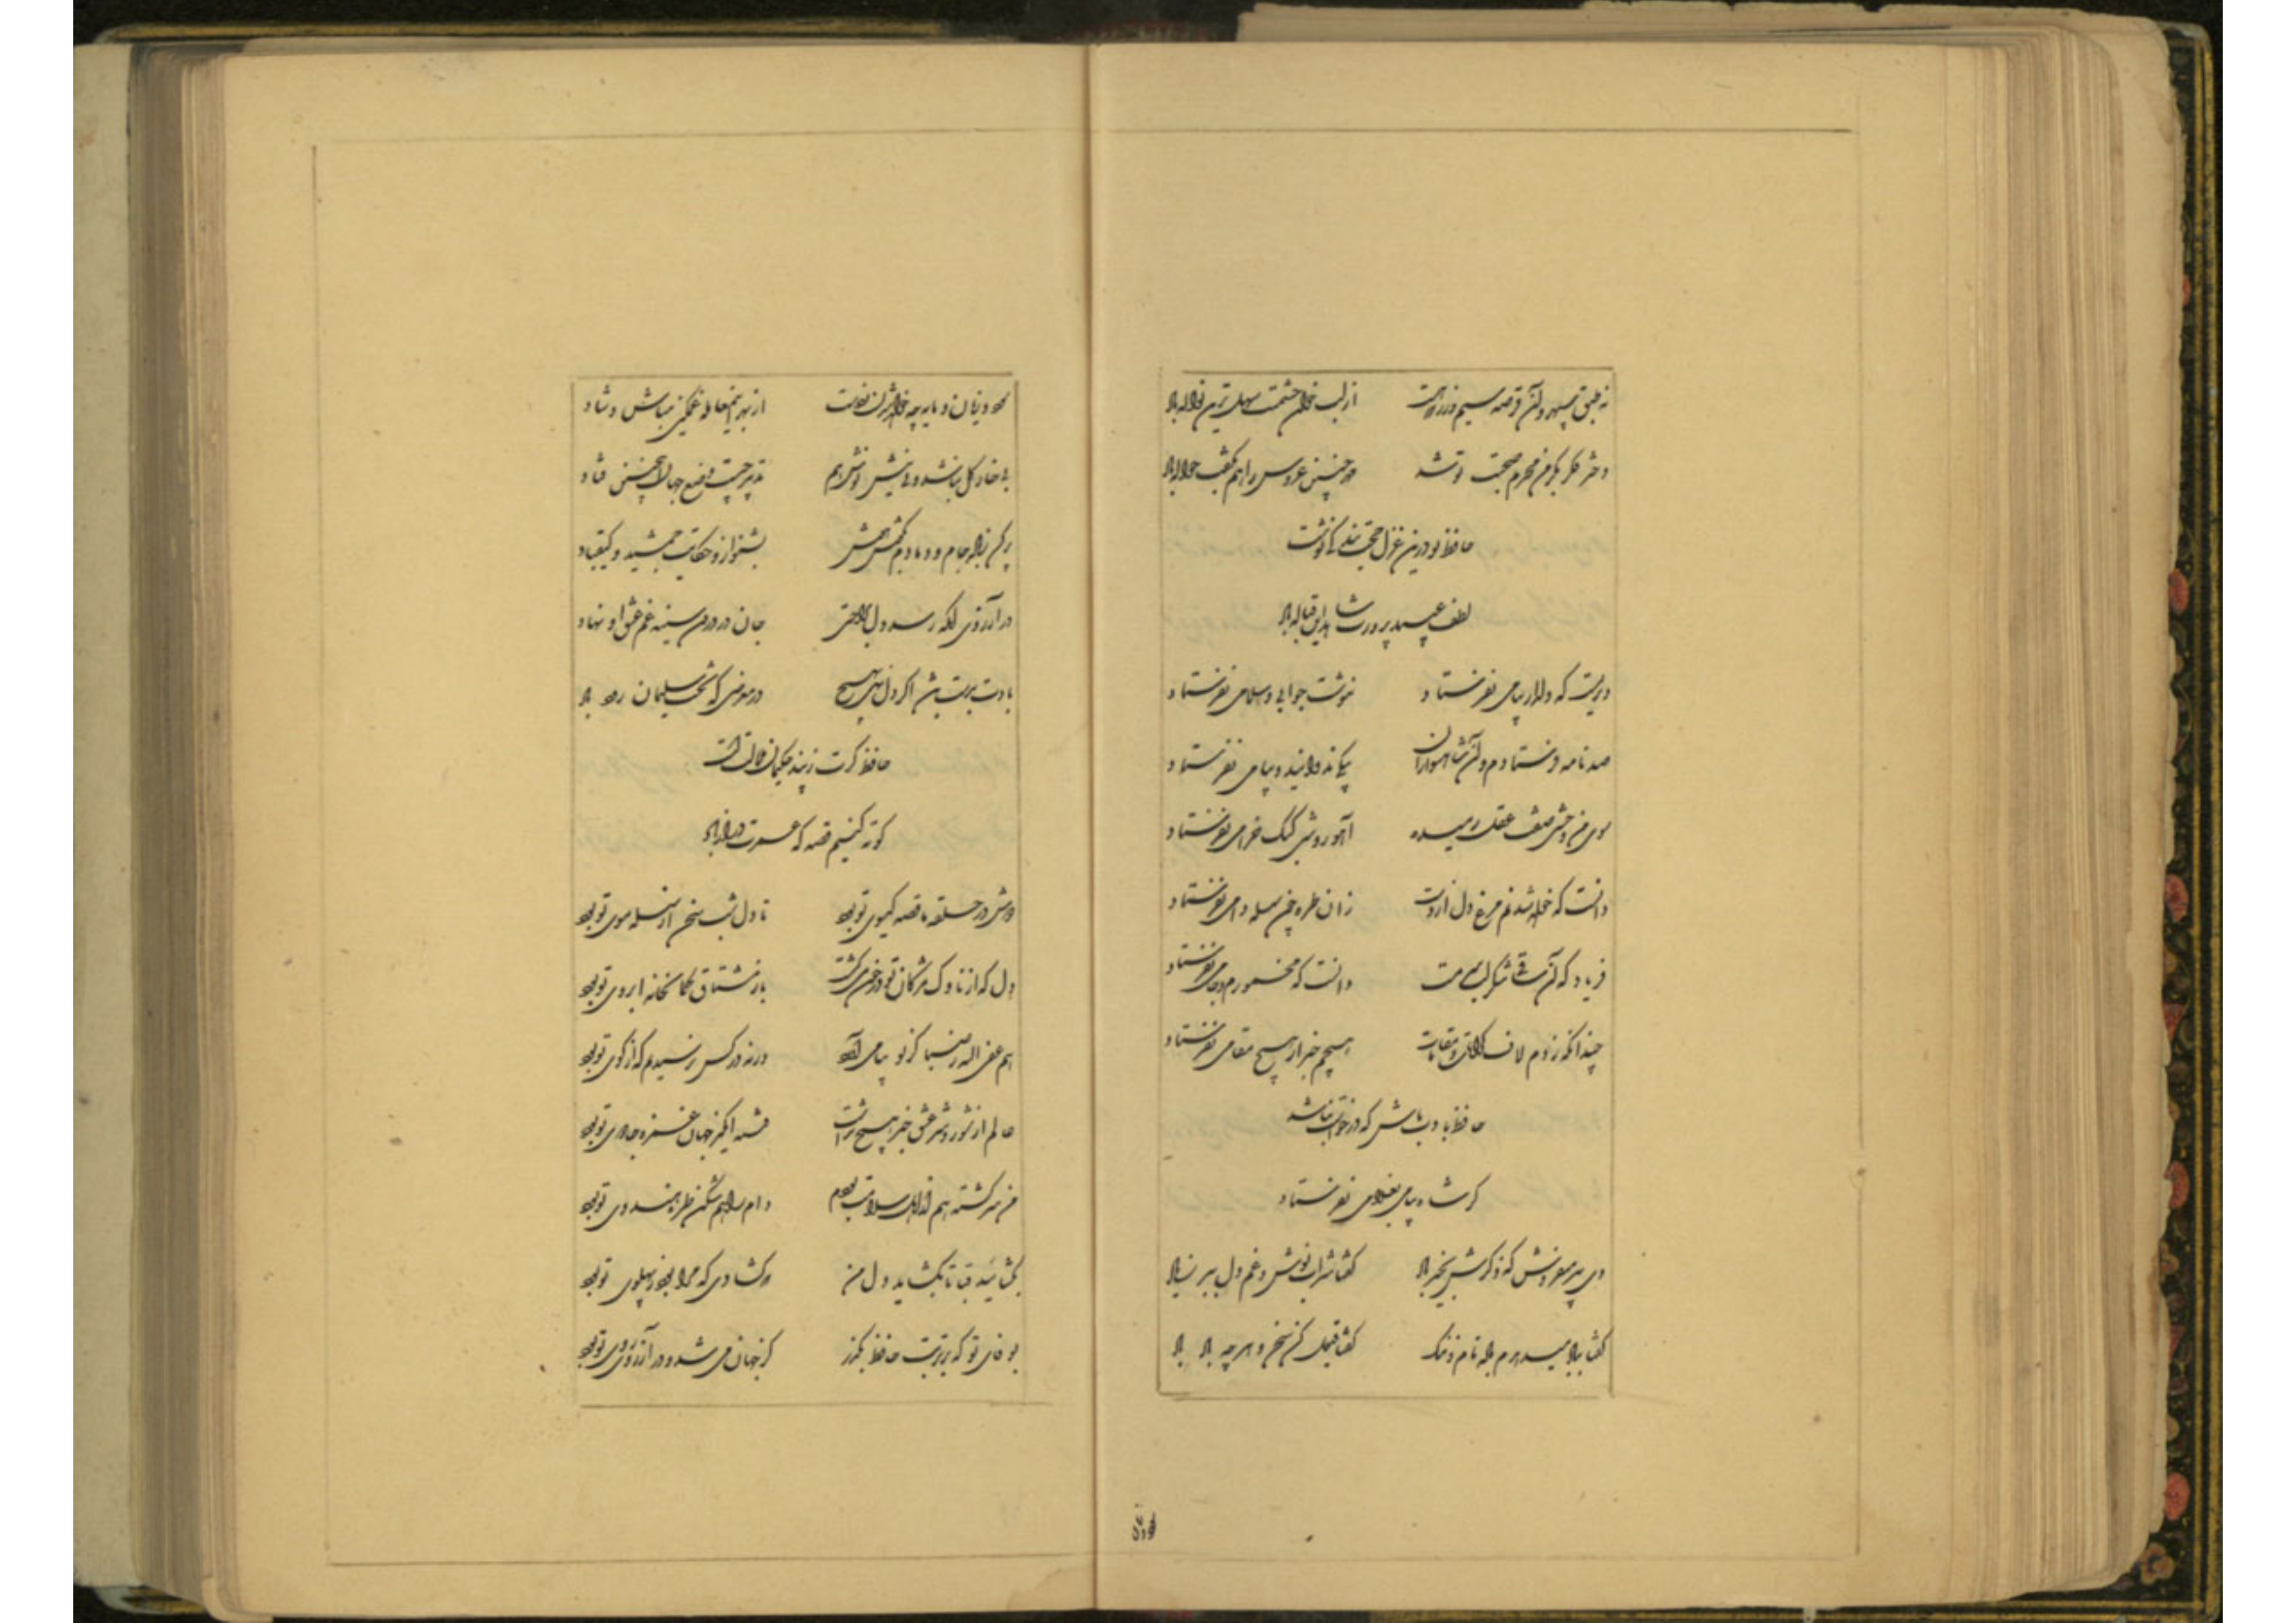 نه طبق سپهر و آن قرصه سیم و زر که هست از لب خوان حشمتت سهل ترین نواله باد
دختر فکر بکر من محرم صحبت تو شد مهر چنین عروس را هم بکفت حواله باد
حافظ تو درین غزل حجت بندگی نوشت
لطف عبید پرورت شاهد این قباله باد
دیریست که دلدار پیامی نفرستاد ننوشت جوابی و سلامی نفرستاد
صد نامه فرستادم و آن شاه سواران پیکی ندوانید و پیامی نفرستاد
سوی من وحشی صفت عقل رمیده آهو روشی کبک خرامی نفرستاد
دانست که خواهد شدنم مرغ دل از دست زان طره چون سلسله دامی نفرستاد
فریاد که آن ساقی شکر لب سرمست دانست که مخمورم و جامی نفرستاد
چندانکه زدم لاف کرامات و مقامات هیچم خبر از هیچ مقامی نفرستاد
حافظ بادب باش که درخواست نباشد
گر شاه پیامی بغلامی نفرستاد
دی پیر میفروش که ذکرش بخیر باد گفتا شراب نوش و غم دل ببر ز یاد
گفتم بباد میدهدم باده نام و ننگ گفتا قبول کن سخن و هر چه باد باد
سود و زیان و مایه چو خواهد شدن ز دست از بهر این معامله غمگین مباش و شاد
بی خار گل نباشد و بی نیش نوش هم تدبیر چیست وضع جهان این چنین فتاد
پر کن ز باده جام و دمادم بگوش هوش بشنو ازو حکایت جمشید و کیقباد
در آرزوی آنکه رسد دل براحتی جان در درون سینه غم عشق او نهاد
بادت بدست باشد اگر دل نهی بهیچ در معرضی که تخت سلیمان رود بباد
حافظ گرت ز پند حکیمان ملالتست
کوته کنیم قصه که عمرت دراز باد
دوش در حلقه ما قصه گیسوی تو بود تا دل شب سخن از سلسله موی تو بود
دل که از ناوک مژگان تو در خون میگشت باز مشتاق کمانخانه ابروی تو بود
هم عفی الله ز صبا کز تو پیامی آورد ورنه در کس نرسیدیم که از کوی تو بود
عالم از شور و شر عشق خبر هیچ نداشت فتنه انگیز جهان غمزه جادوی تو بود
من سرگشته هم از اهل سلامت بودم دام راهم شکن طره هندوی تو بود
بگشا بند قبا تا بگشاید دل من که گشادی که مرا بود ز پهلوی تو بود
بوفای تو که بر تربت حافظ بگذر کز جهان می شد و در آرزوی روی تو بود